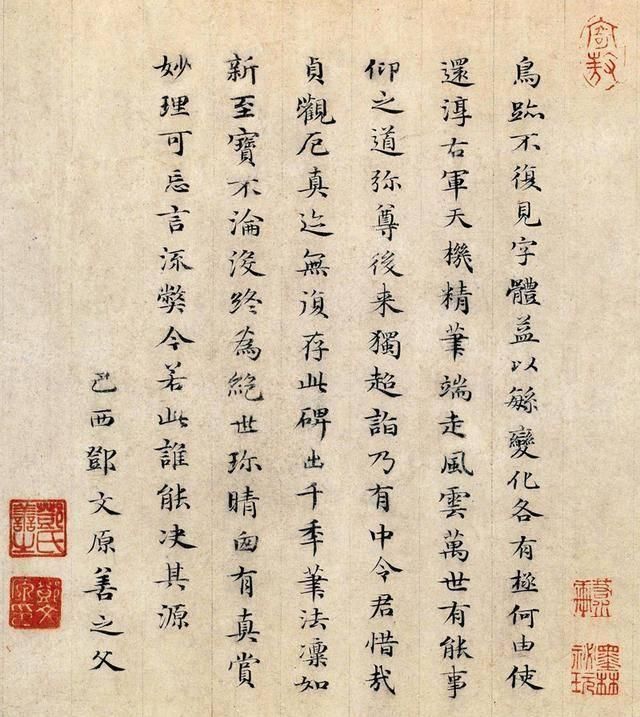 鳥跡不復見字體益以緐變化各有極何由使
還淳右軍天機精筆端走風雲萬世有能事
仰之道弥尊後来獨超詣乃有中令君惜哉
貞觀厄真迹無復存此碑出千秊筆法凛如
新至寶不淪没終為絶世珎晴囱有真賞
妙理可忘言流弊今若此誰能决其源
己酉鄧文原善之父
墨林祕玩